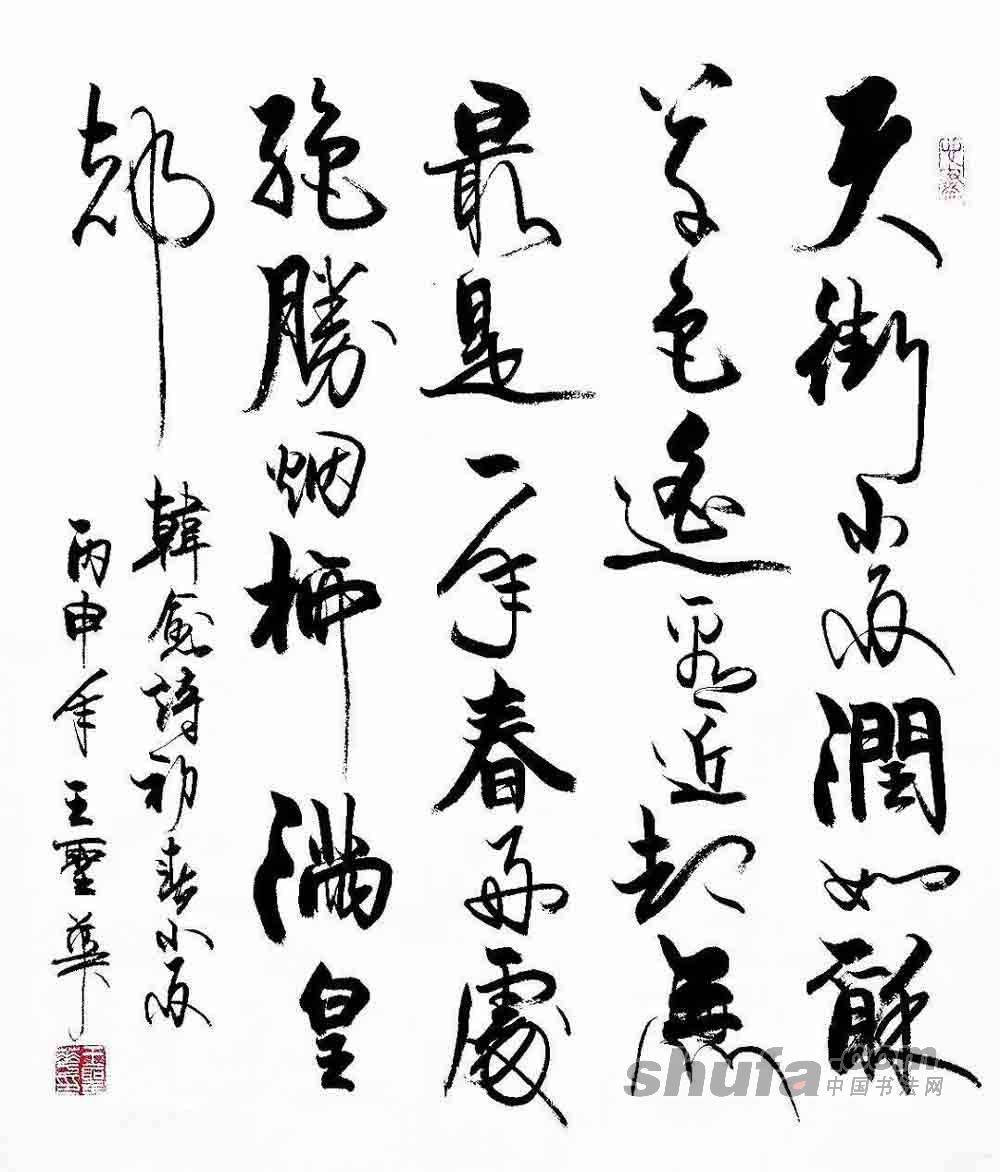 天街小雨潤如酥
草色遙看近却無
最是一年春好處
絕勝烟柳滿皇
都
韓愈詩初春小雨
丙申年王聖華
shufa.com
中国书法网